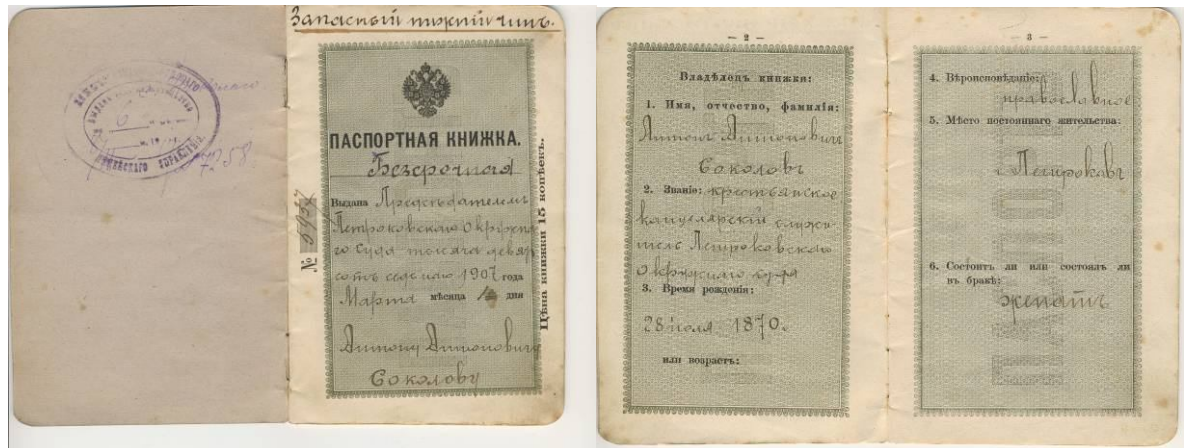 Запасный нижній чинъ.
ПАСПОРТНАЯ КНИЖКА.
Безсрочная
Выдана Предсѣдателемъ
Петроковскаго Окружна
го Суда тысяча девять
сотъ седьмаго 1907 года
Марта мѣсяца дня
Антону Антоновичу
Соколову
№ 5957
Цѣна книжки 15 копѣекъ.
7258.
— 2 —
Владѣлецъ книжки:
1. Имя, отчество, фамилія:
Антонъ Антоновичъ
Соколовъ
2. Званіе: крестьянское
канцелярскій служи
тель Петроковскаго
Окружнаго суда
3. Время рожденія:
28 іюля 1870.
или возрастъ:
— 3 —
4. Вѣроисповѣданіе:
православное
5. Мѣсто постояннаго жительства:
г. Петроковъ
6. Состоитъ ли или состоялъ ли
въ бракѣ:
женатъ